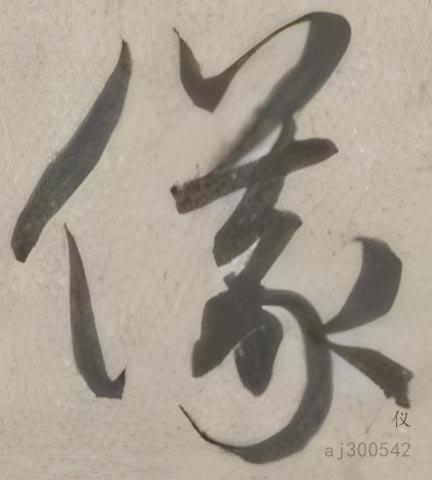 儀
仪
aj300542